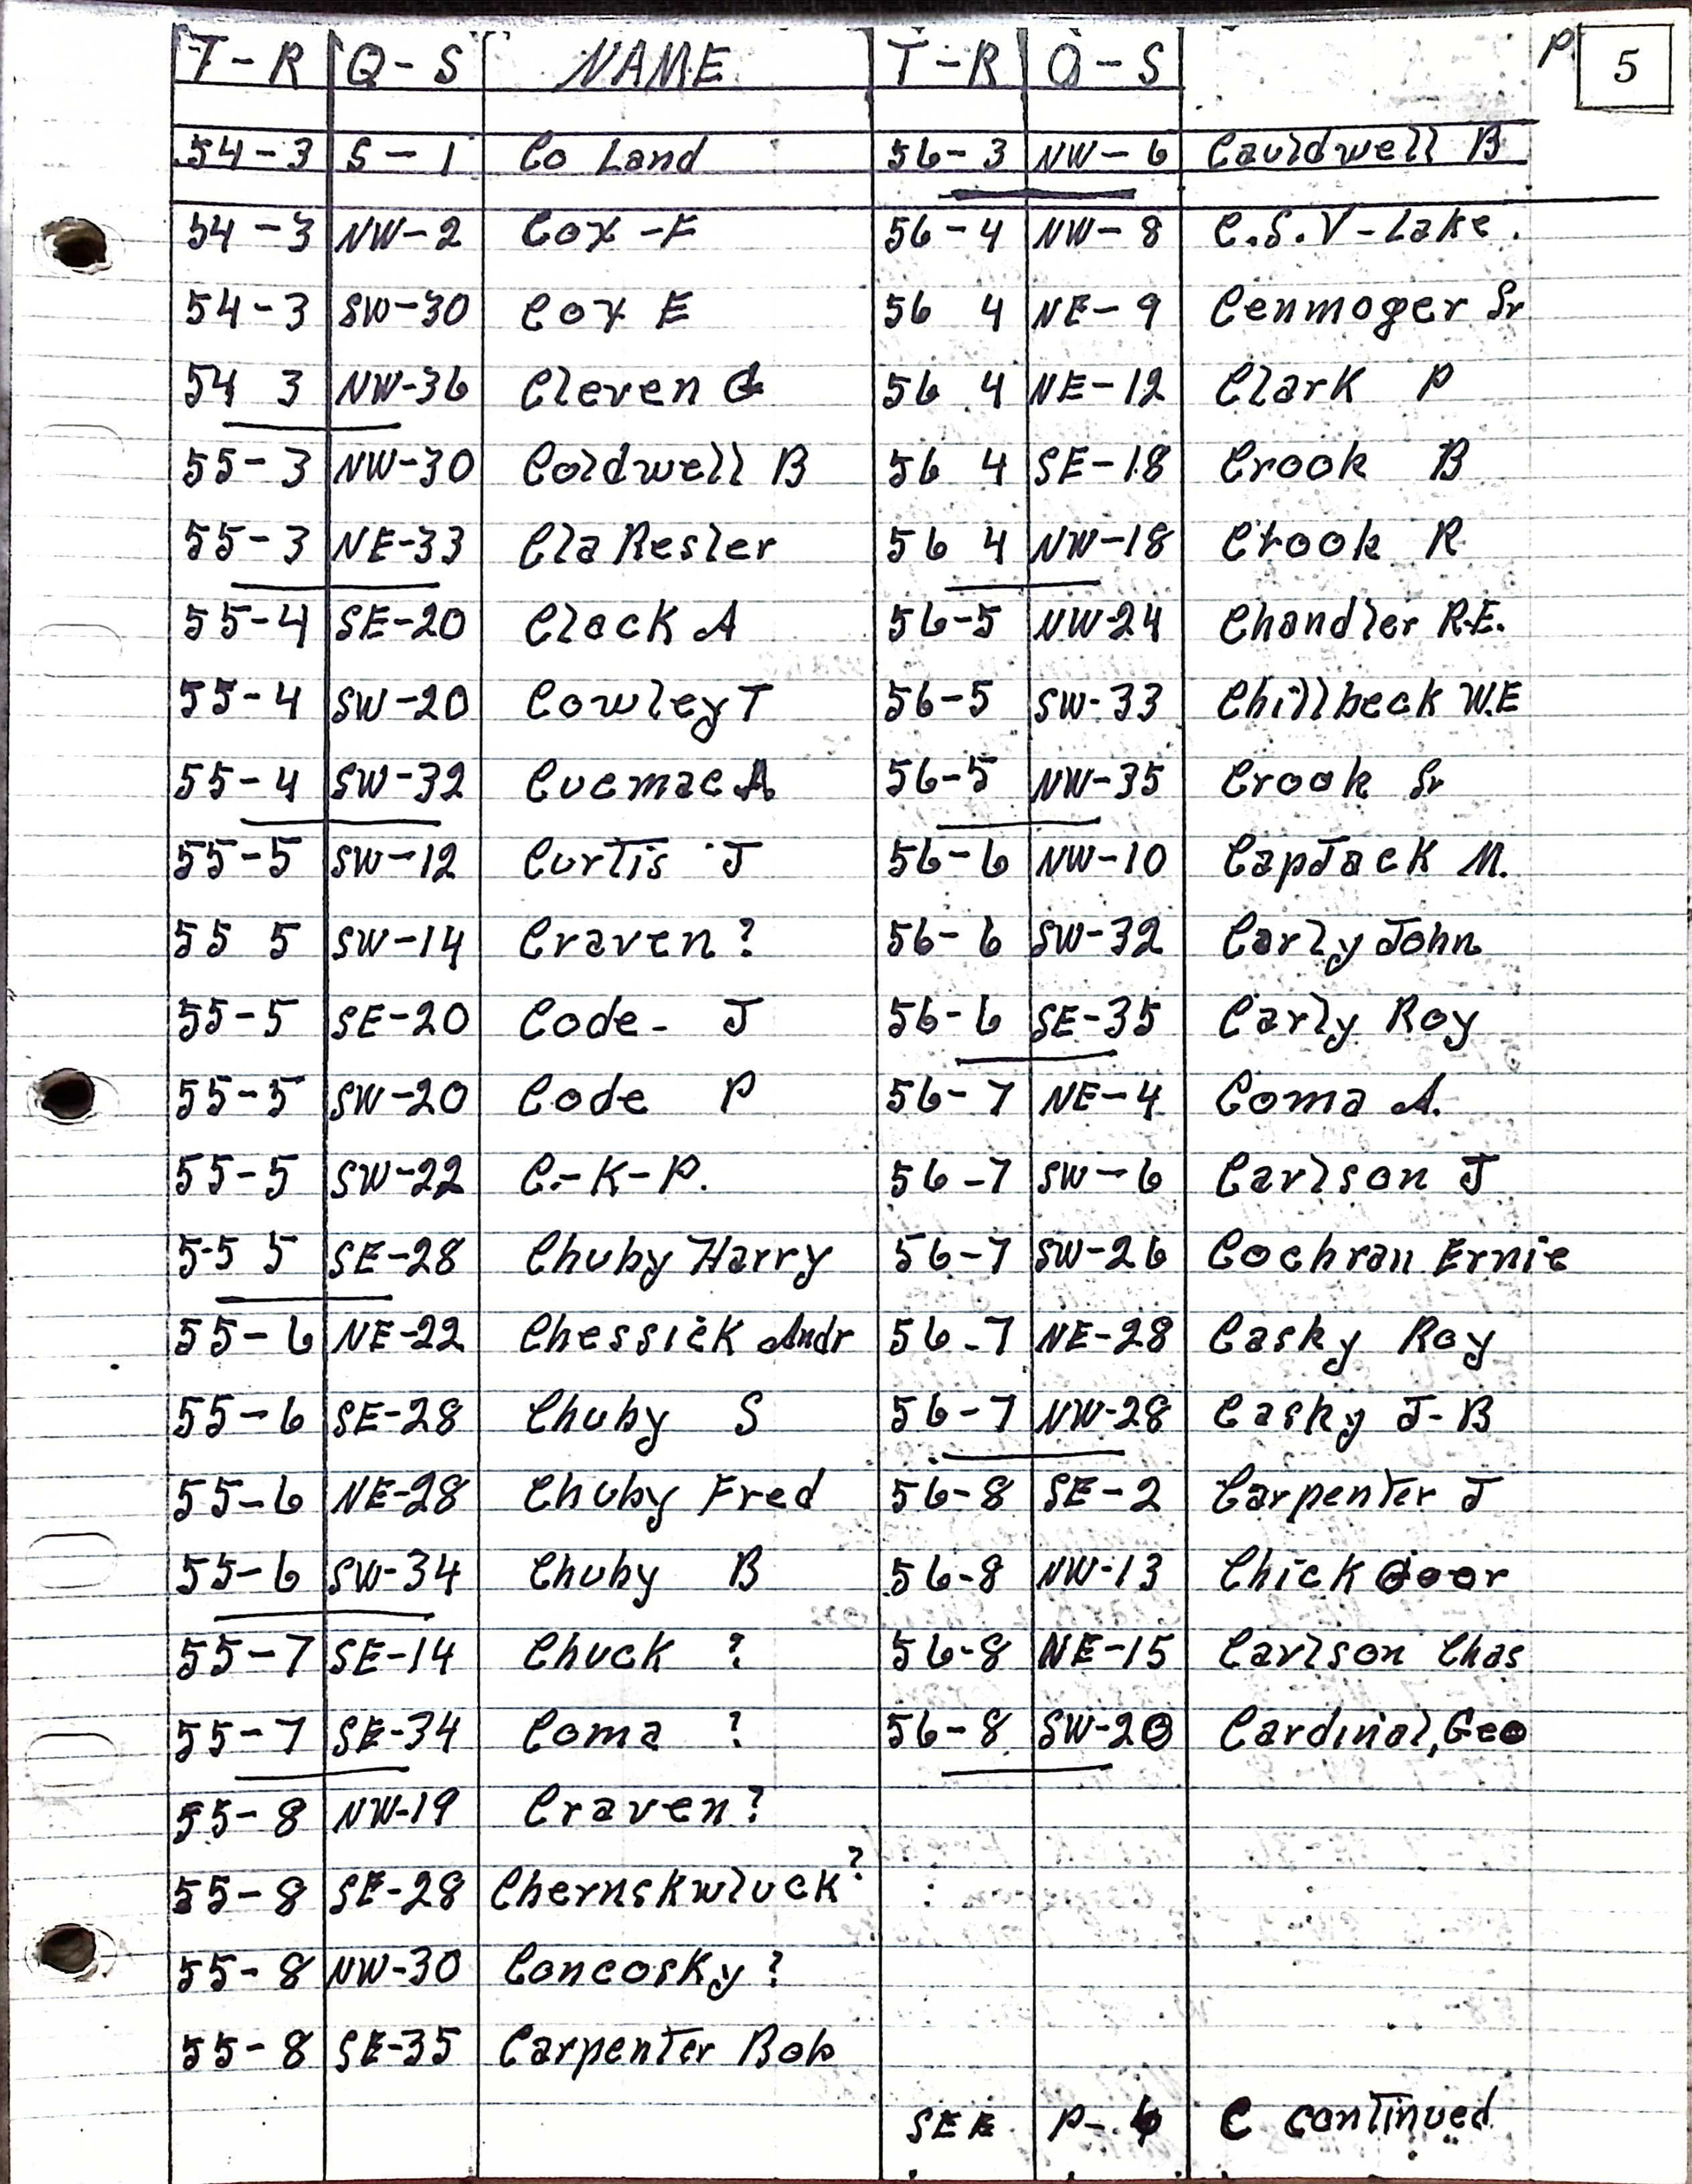 T-R Q-S NAME T-R Q-S P. 5
54-3 S-1 Co Land 56-3 NW-6 Cauldwell B
54-3 NW-2 Cox-F 56-4 NW-8 C.S.V-Lake.
54-3 SW-30 Cox E 56 4 NE-9 Cenmoger Sr
54 3 NW-36 Cleven G 56 4 NE-12 Clark P
55-3 NW-30 Coldwell B 56 4 SE-18 Crook B
55-3 NE-33 Cla Resler 56 4 NW-18 Crook R
55-4 SE-20 Clack A 56-5 NW-24 Chandler R.E.
55-4 SW-20 Cowley T 56-5 SW-33 Chillbeck W.E
55-4 SW-32 Cucmac A 56-5 NW-35 Crook Sr
55-5 SW-12 Curtis J 56-6 NW-10 CapJack M.
55 5 SW-14 Craven? 56-6 SW-32 Carly John
55-5 SE-20 Code- J 56-6 SE-35 Carly Roy
55-5 SW-20 Code P 56-7 NE-4 Coma A.
55-5 SW-22 C.-K-P. 56-7 SW-6 Carlson J
55 5 SE-28 Chuby Harry 56-7 SW-26 Cochran Ernie
55-6 NE-22 Chessick Andr 56-7 NE-28 Casky Roy
55-6 SE-28 Chuby S 56-7 NW-28 Casky J-B
55-6 NE-28 Chuby Fred 56-8 SE-2 Carpenter J
55-6 SW-34 Chuby B 56-8 NW-13 Chick
55-7 SE-14 Chuck ? 56-8 NE-15 Carlson Chas
55-7 SE-34 Coma ? 56-8 SW-20 Cardinal, Geo
55-8 NW-19 Craven?
55-8 SE-28 Chernskwluck?
55-8 NW-30 Concosky?
55-8 SE-35 Carpenter Bob
SEE P-6 C continued